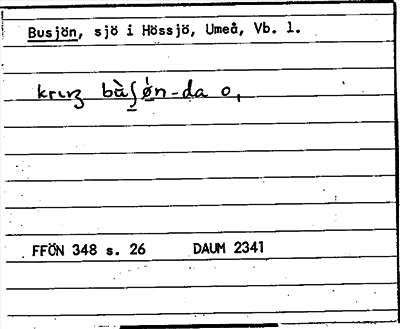 Busjön, sjö i Hössjö, Umeå, Vb. l.
krɩʒ bὰʃǿn-da o,
FFÖN 348 s. 26 DAUM 2341